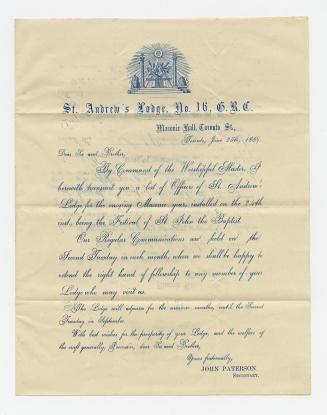 St. Andrew's Lodge, No. 16, G. R. C.
Masonic Hall, Toronto St.,
Toronto, June 25th, 186
Dear Sir and Brother,
By Command of the Worshipful Master, I
herewith transmit you a list of Officers of St. Andrew's
Lodge for the ensuing Masonic year, installed on the 24th
inst., being the Festival of St. John the Baptist.
Our Regular Communications are held on the
Second Tuesday in each month, when we shall be happy to
extend the right hand of fellowship to any member of your
Lodge who may visit us.
The Lodge will adjourn for the summer months, until the Second
Tuesday in September.
With best wishes for the prosperity of your Lodge, and the welfare of
the craft generally, I remain, dear Sir and Brother,
Yours fraternally,
JOHN PATERSON,
SECRETARY.